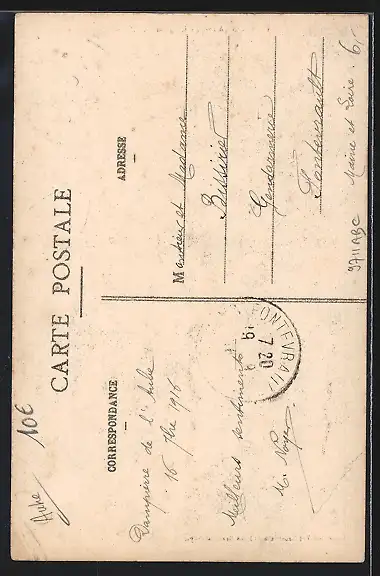 Aube
10€
CARTE POSTALE
CORRESPONDANCE
ADRESSE
Dampierre de l'Aube
16 7bre 1916
Meilleurs sentiments
FONTEVRAULT
7 20
19
Monsieur et Madame
Gendarmerie
Fontevrault
Maine et Loire
6,-
9711ABC